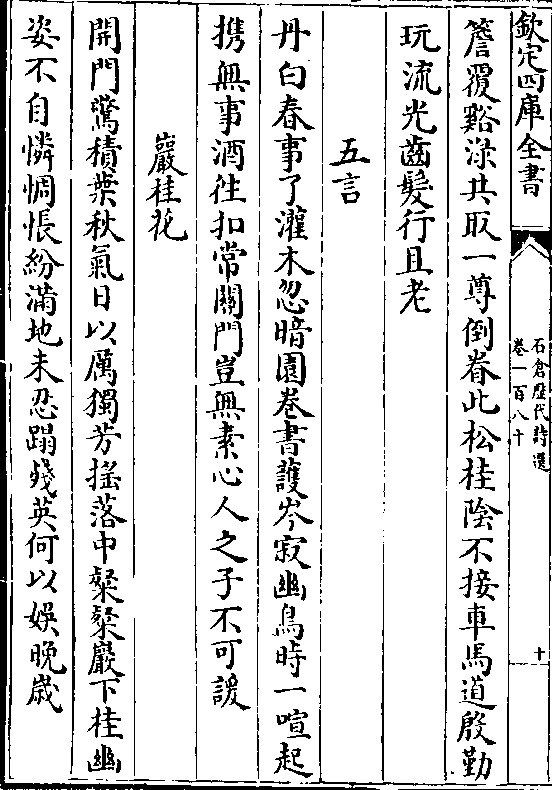 欽定四庫全書
石倉歷代詩選
卷一百八十
十
簷覆谿淥共取一尊倒眷此松桂陰不接車馬道殷勤
玩流光齒髮行且老
五言
丹白春事了灌木忽暗園卷書護岑寂幽鳥時一喧起
携無事酒往扣常關門豈無素心人之子不可諼
巖桂花
開門驚積葉秋氣日以厲獨芳搖落中粲粲巖下桂幽
姿不自憐惆悵紛滿地未忍蹋殘英何以娛晚歲